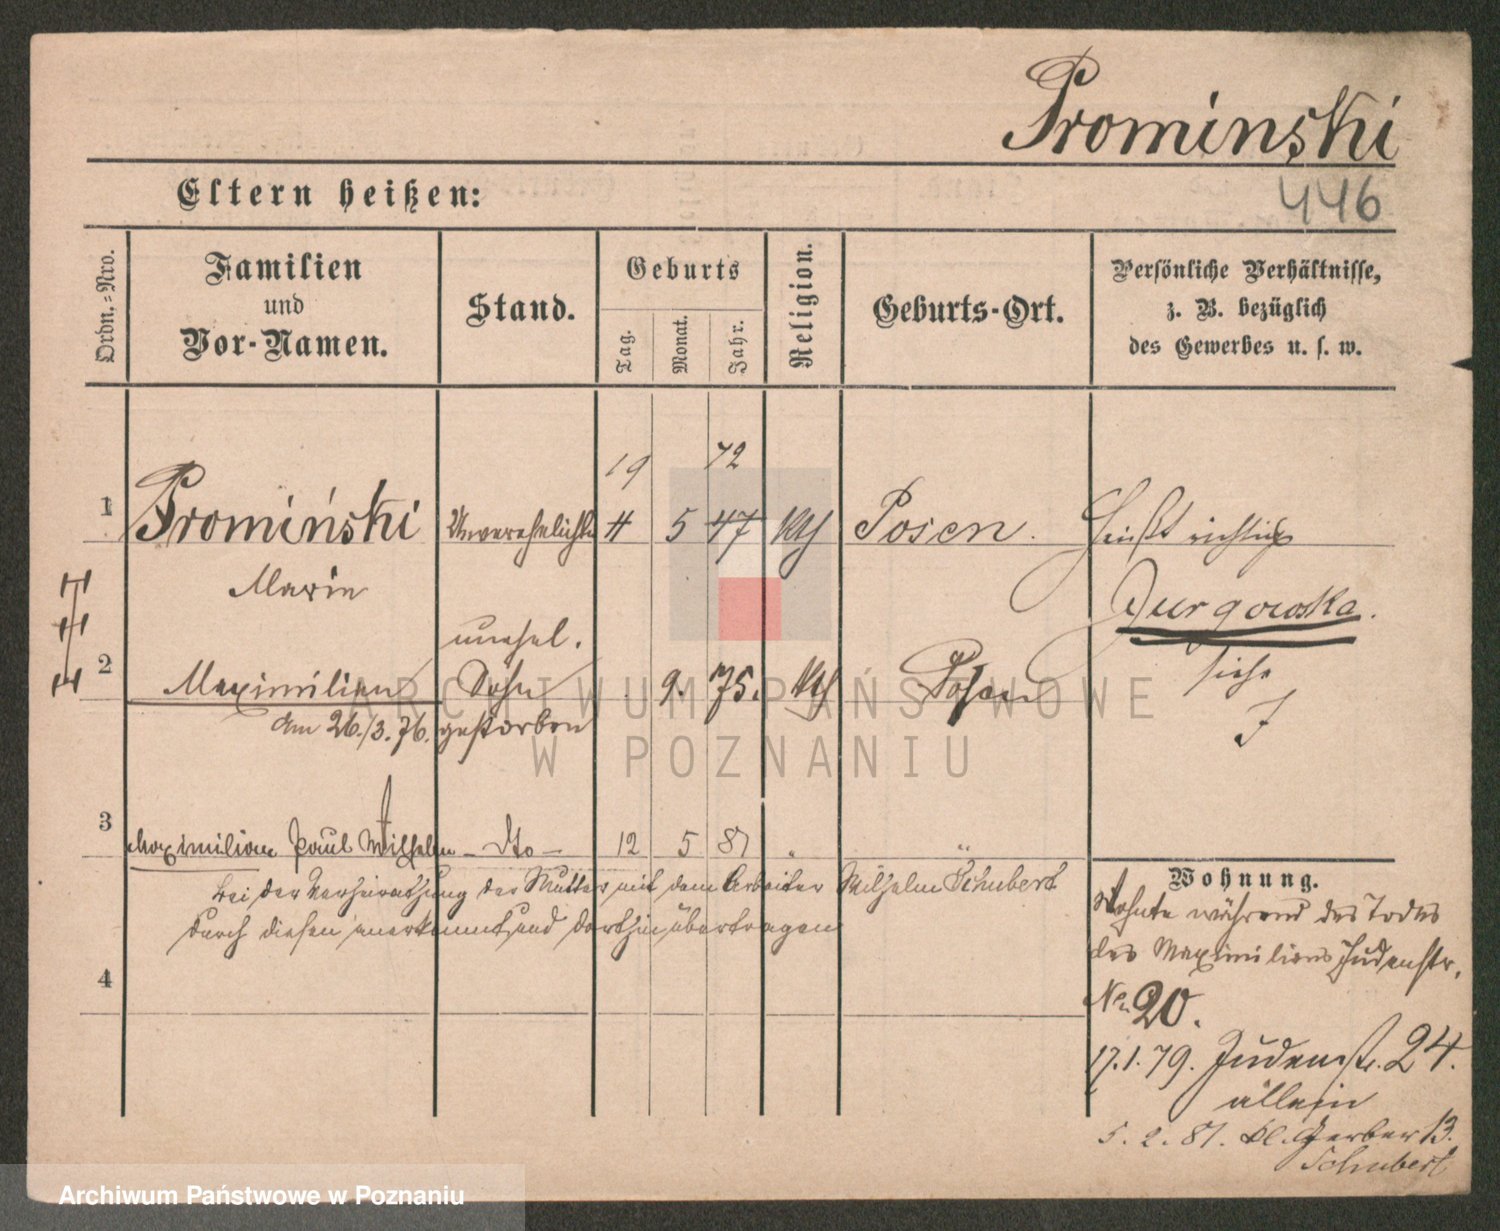 Prominski
446
Eltern heißen:
Ordn.=Nro.
Familien
und
Vor-Namen.
Stand.
Geburts
Tag.
Monat.
Jahr.
Religion.
Geburts-Ort.
Persönliche Verhältnisse,
z. B. bezüglich
des Gewerbes u. s. w.
19 72
1 Promiński Unverehelichte 4 5 47 kth Posen. Heißt richtig
Marie Durgowska.
unehel. siehe
2 Maximilian Sohn 9. 75. kth Posen J
Am 26./3. 76. gestorben
3 Maximilian Paul Wilhelm - dto - 12 5 81 " "
bei der Verheirathung der Mutter mit dem Arbeiter Wilhelm Schubert
durch diesen anerkannt und dorthin übertragen
4
Wohnung.
Wohnte während des Todes
des Maximilians Judenstr.
No 20.
17.1.79. Judenstr. 24.
allein
5. 2. 81. Kl. Gerber 13.
Schubert
ARCHIWUM PAŃSTWOWE
W POZNANIU
Archiwum Państwowe w Poznaniu